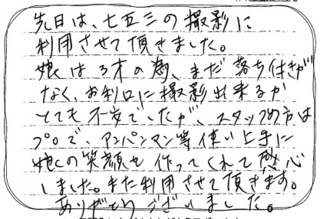 先日は、七五三の撮影に
利用させて頂きました。
娘は3才の為、まだ落ち付きが
なく、お利口に撮影出来るか
とても不安でしたが、スタッフの方は
プロで、アンパンマン等使い上手に
娘の笑顔を作ってくれて感心
しました。また利用させて頂きます。
ありがとうございました。